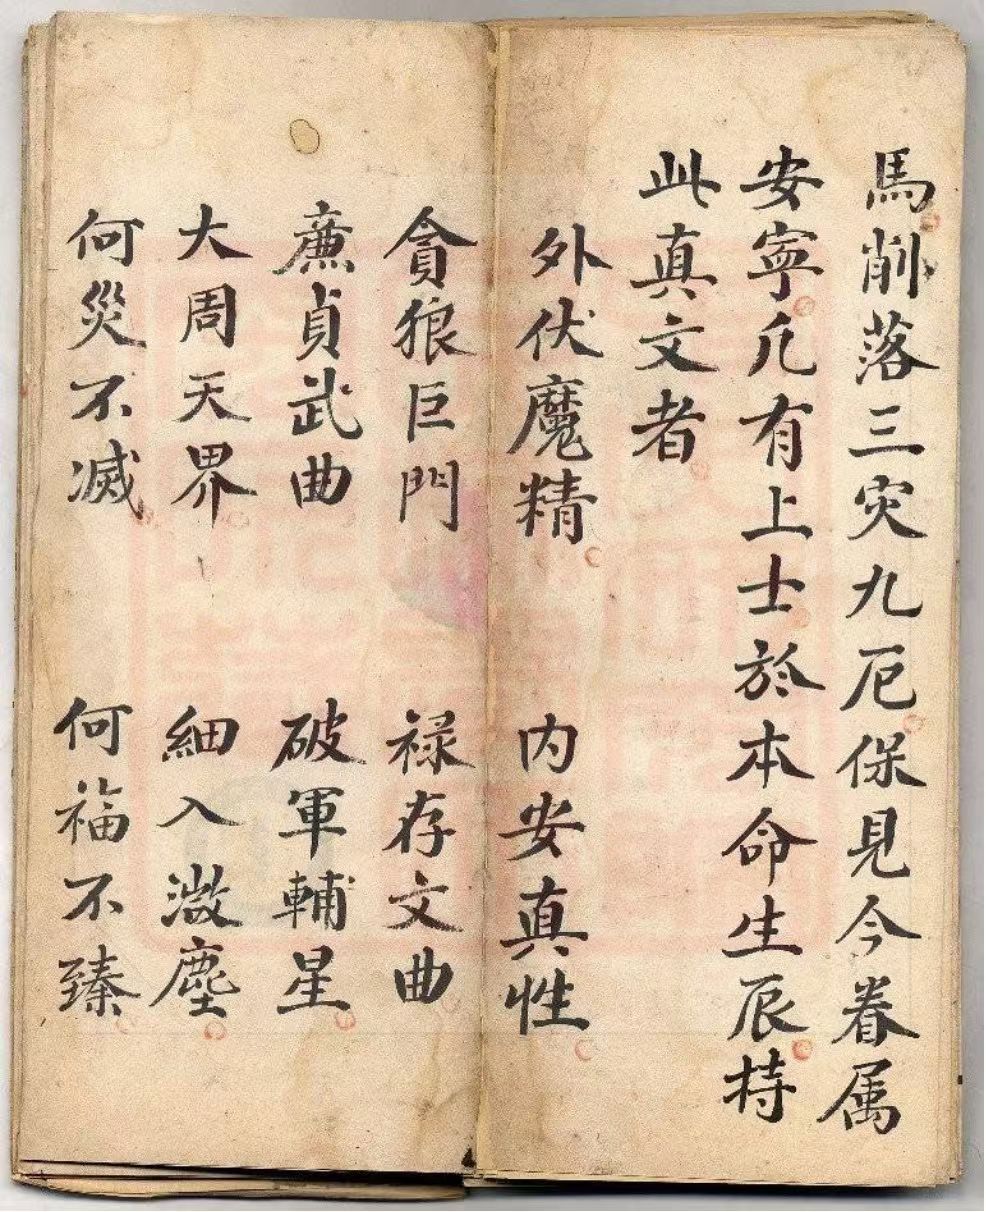 馬削落三灾九厄保見今眷属
安寧凡有上士於本命生辰持
此真文者
外伏魔精 内安真性
貪狼巨門 禄存文曲
廉貞武曲 破軍輔星
大周天界 細入微塵
何災不滅 何福不臻